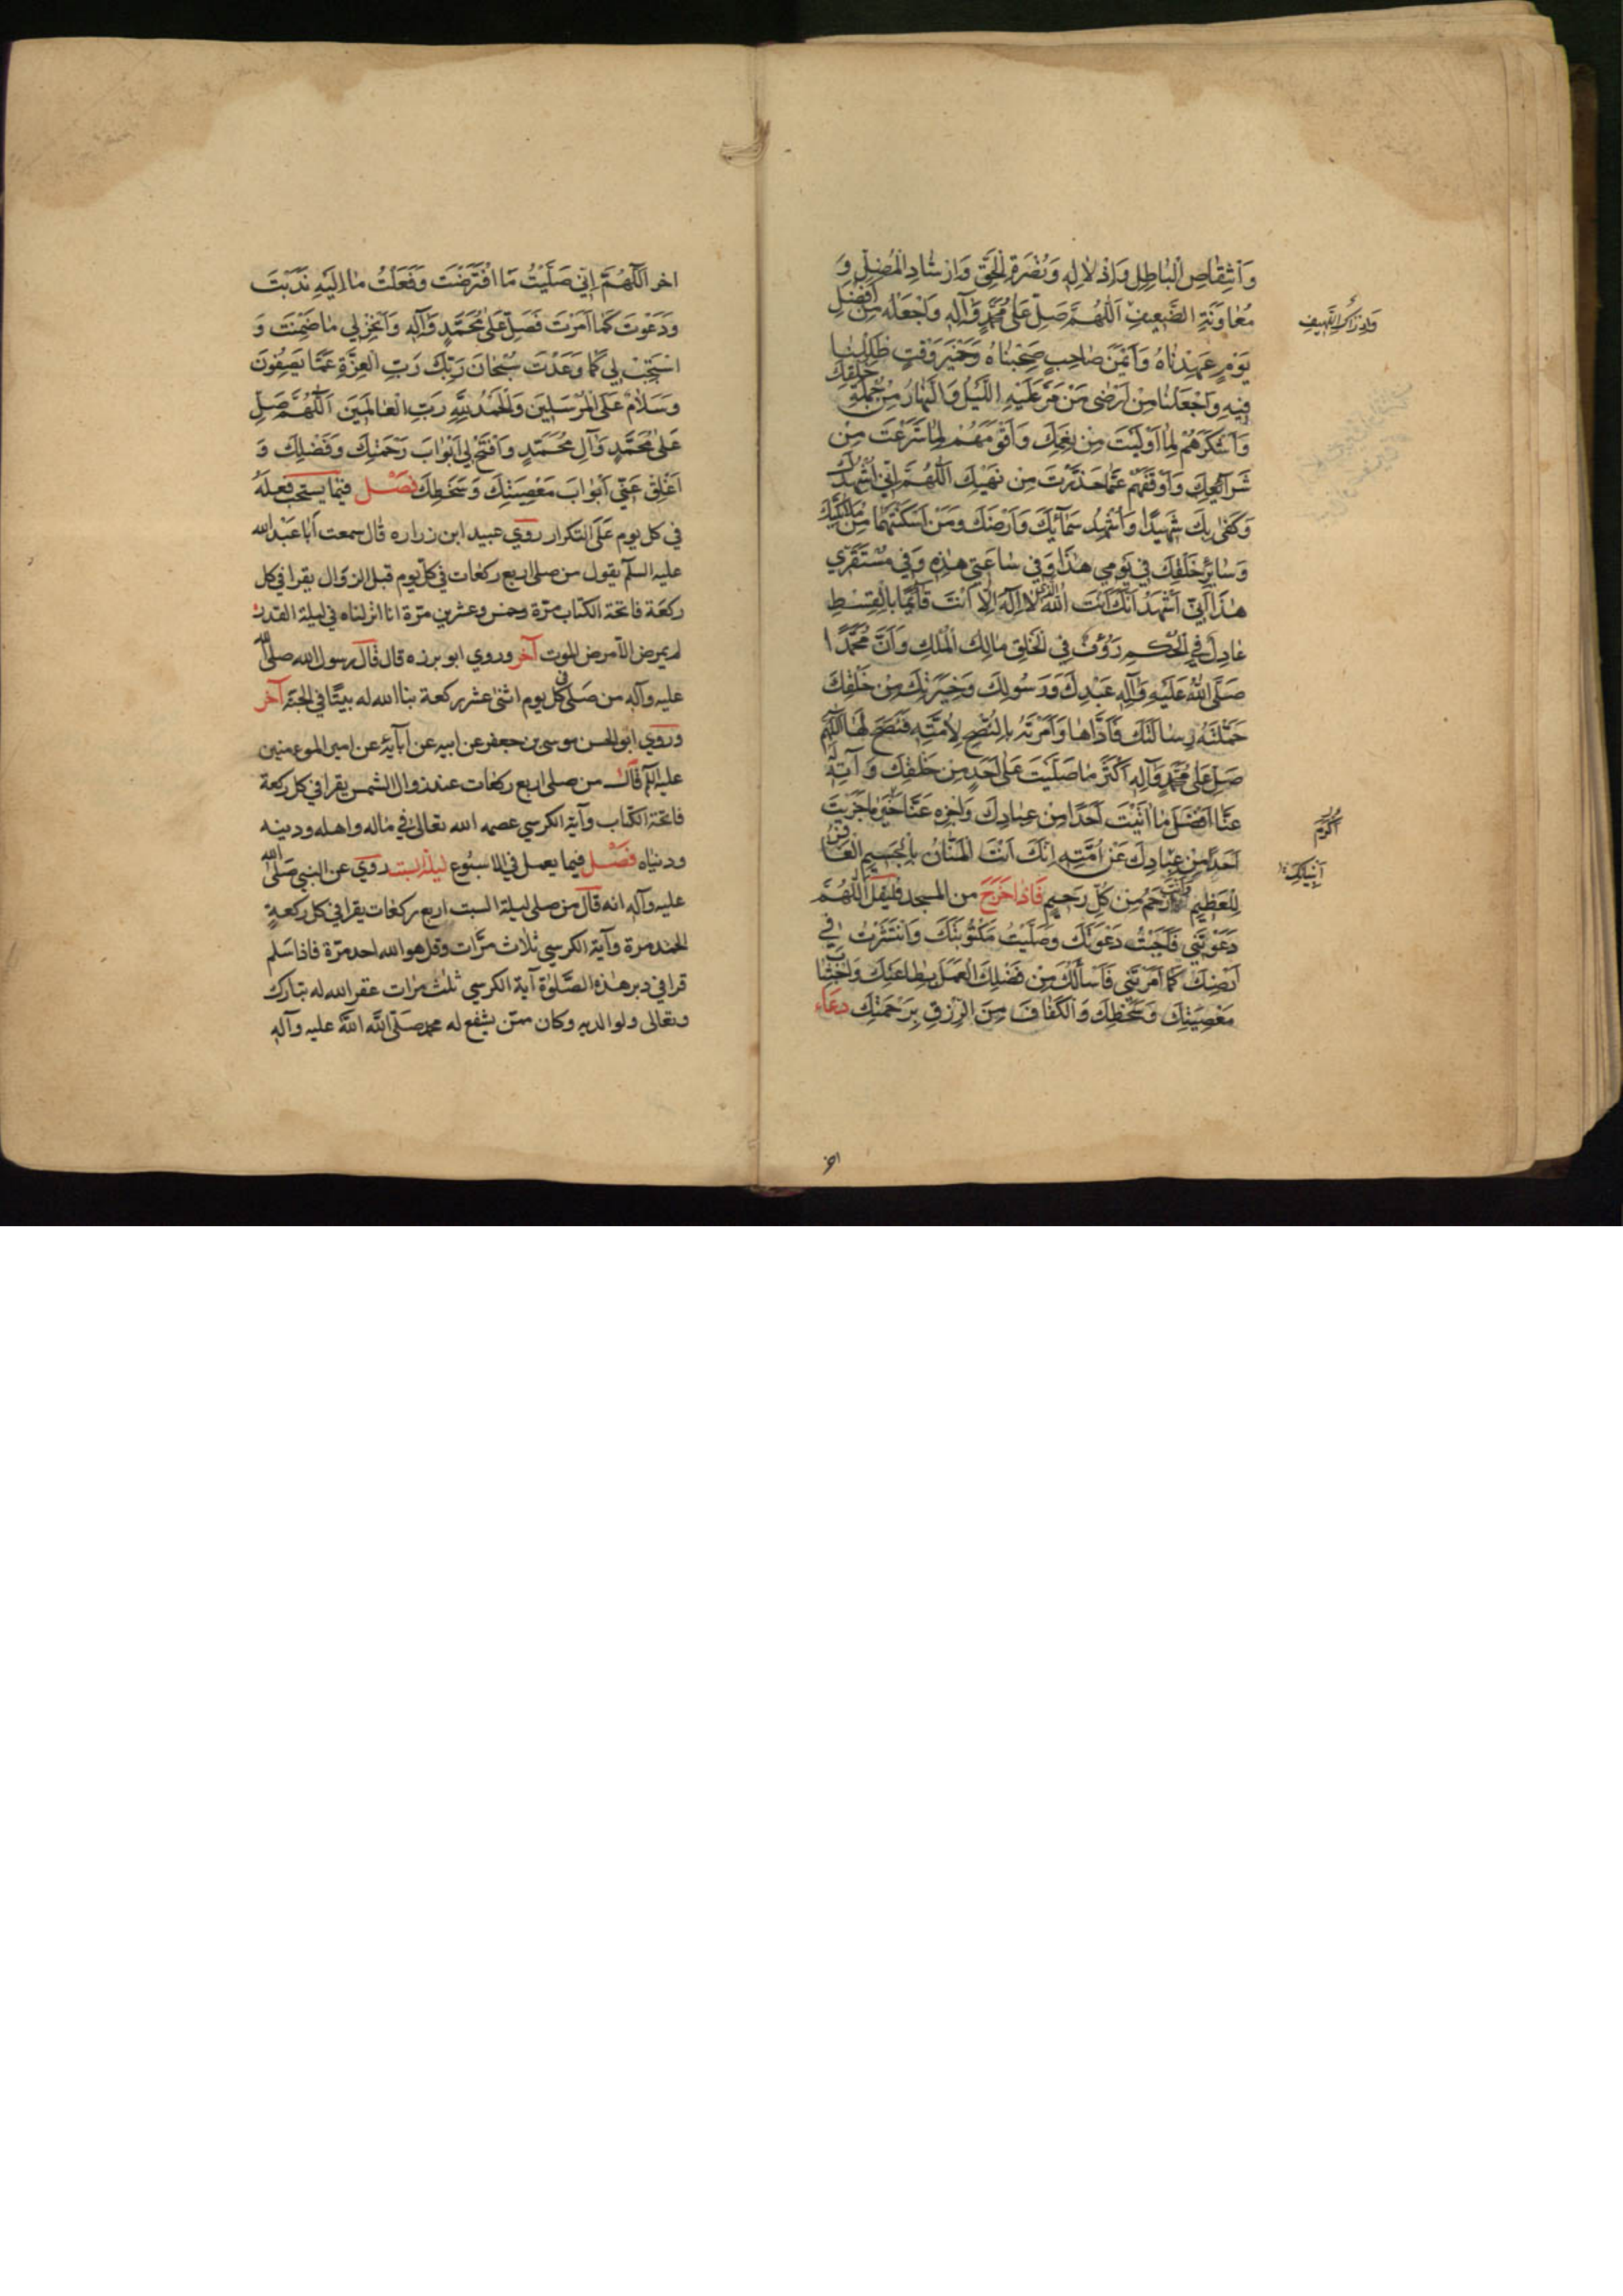 وَانْتِقَاصِ الْبَاطِلِ وَاِذْلَالِهِ وَنُصْرَةِ الْحَقِّ وَاِرْشَادِ الْمُضِلِّ وَ
مُعَاوَنَةِ الضَّعِيفِ اَللّٰهُمَّ صَلِّ عَلٰى مُحَمَّدٍ وَاٰلِهِ وَاجْعَلْهُ مِنْ اَفْضَلِ
وَاِدْرَاكِ اللَّهِيفِ
يَوْمٍ عَهِدْنَاهُ وَاَيْمَنَ صَاحِبٍ صَحِبْنَاهُ وَخَيْرَ وَقْتٍ ظَلِلْنَا
فِيهِ وَاجْعَلْنَا مِنْ اَرْضٰى مَنْ مَرَّ عَلَيْهِ اللَّيْلُ وَالنَّهَارُ مِنْ جُمْلَةِ خَلْقِكَ
وَاَشْكَرَهُمْ لِمَا اَوْلَيْتَ مِنْ نِعَمِكَ وَاَقْوَمَهُمْ لِمَا شَرَعْتَ مِنْ
شَرَائِعِكَ وَاَوْقَفَهُمْ عَمَّا حَذَّرْتَ مِنْ نَهْيِكَ اَللّٰهُمَّ اِنِّي اُشْهِدُكَ
وَكَفٰى بِكَ شَهِيدًا وَاُشْهِدُ سَمَائَكَ وَاَرْضَكَ وَمَنْ اَسْكَنْتَهُمَا مِنْ مَلَائِكَتِكَ
وَسَائِرِ خَلْقِكَ فِي يَوْمِي هٰذَا وَفِي سَاعَتِي هٰذِهِ وَفِي مُسْتَقَرِّي
هٰذَا اَنِّي اَشْهَدُ اَنَّكَ اَنْتَ اللّٰهُ الَّذِي لَا اِلٰهَ اِلَّا اَنْتَ قَائِمًا بِالْقِسْطِ
عَادِلٌ فِي الْحُكْمِ رَؤُفٌ فِي الْخَلْقِ مَالِكُ الْمُلْكِ وَاَنَّ مُحَمَّدًا
صَلَّى اللّٰهُ عَلَيْهِ وَاٰلِهِ عَبْدُكَ وَرَسُولُكَ وَخِيَرَتُكَ مِنْ خَلْقِكَ
حَمَّلْتَهُ رِسَالَتَكَ فَاَدَّاهَا وَاَمَرْتَهُ بِالنُّصْحِ لِاُمَّتِهِ فَنَصَحَ لَهَا اَللّٰهُمَّ
صَلِّ عَلٰى مُحَمَّدٍ وَاٰلِهِ اَكْثَرَ مَا صَلَّيْتَ عَلٰى اَحَدٍ مِنْ خَلْقِكَ وَاٰتِهِ
عَنَّا اَفْضَلَ مَا اٰتَيْتَ اَحَدًا مِنْ عِبَادِكَ وَاجْزِهِ عَنَّا خَيْرَ مَا جَزَيْتَ
اَكْرَمَ
اَحَدًا مِنْ عِبَادِكَ عَنْ اُمَّتِهِ اِنَّكَ اَنْتَ الْمَنَّانُ بِالْجَسِيمِ الْغَافِرُ
اَنْبِيَائِكَ
لِلْعَظِيمِ وَاَنْتَ اَرْحَمُ مِنْ كُلِّ رَحِيمٍ فَاذَا خَرَجَ من المسجد فليقل اَللّٰهُمَّ
دَعَوْتَنِي فَاَجَبْتُ دَعْوَتَكَ وَصَلَّيْتُ مَكْتُوبَتَكَ وَانْتَشَرْتُ فِي
اَرْضِكَ كَمَا اَمَرْتَنِي فَاَسْاَلُكَ مِنْ فَضْلِكَ الْعَمَلَ بِطَاعَتِكَ وَاجْتِنَابَ
مَعْصِيَتِكَ وَسَخَطِكَ وَالْكَفَافَ مِنَ الرِّزْقِ بِرَحْمَتِكَ دعَاء
اخر
اخر اَللّٰهُمَّ اِنِّي صَلَّيْتُ مَا افْتَرَضْتَ وَفَعَلْتُ مَا اِلَيْهِ نَدَبْتَ
وَدَعَوْتَ كَمَا اَمَرْتَ فَصَلِّ عَلٰى مُحَمَّدٍ وَاٰلِهِ وَاَنْجِزْ لِي مَا ضَمِنْتَ وَ
اسْتَجِبْ لِي كَمَا وَعَدْتَ سُبْحَانَ رَبِّكَ رَبِّ الْعِزَّةِ عَمَّا يَصِفُونَ
وَسَلَامٌ عَلَى الْمُرْسَلِينَ وَالْحَمْدُ لِلّٰهِ رَبِّ الْعَالَمِينَ اَللّٰهُمَّ صَلِّ
عَلٰى مُحَمَّدٍ وَاٰلِ مُحَمَّدٍ وَافْتَحْ لِي اَبْوَابَ رَحْمَتِكَ وَفَضْلِكَ وَ
اَغْلِقْ عَنِّي اَبْوَابَ مَعْصِيَتِكَ وَسَخَطِكَ فَصْل فيما يستحب فعله
في كل يوم عَلَى التكرار روي عبيد ابن زراره قال سمعت اَبا عَبْد الله
عليه السلم يقول من صلى اربع ركعات في كل يوم قبل الزوال يقرا في كل
ركعة فاتحة الكتاب مرّة وخمس وعشرين مرّة انا انزلناه في ليلة القدر
لم يمرض الا مرض الموت آخر وروي ابو برزه قال قال رسول الله صلى الله
عليه وآله من صَلى في كل يوم اثنى عشر ركعة بنا الله له بيتًا في الجنة آخر
وروي ابو الحسن موسى بن جعفر عن ابيه عن آبائه عن امير المومنين
عليه السلم قال من صلى اربع ركعات عند زوال الشمس يقرا في كل ركعة
فاتحة الكتاب وآية الكرسي عصمه الله تعالى في ماله واهله ودينه
ودنياه فَصْل فيما يعمل في الاسبُوع ليلة السبت روي عن النبي صَلى الله
عليه وآله انه قال من صلى ليلة السبت اربع ركعات يقرا في كل ركعةٍ
الحمد مرة وآية الكرسي ثلاث مرّات وقل هو الله احد مرّة فاذا سَلم
قرا في دبر هذه الصَّلوٰة آية الكرسي ثلث مرات غفر الله له تبارك
وتعالى ولوالديه وكان ممّن يشفع له محمد صَلّى الله عليه وآله